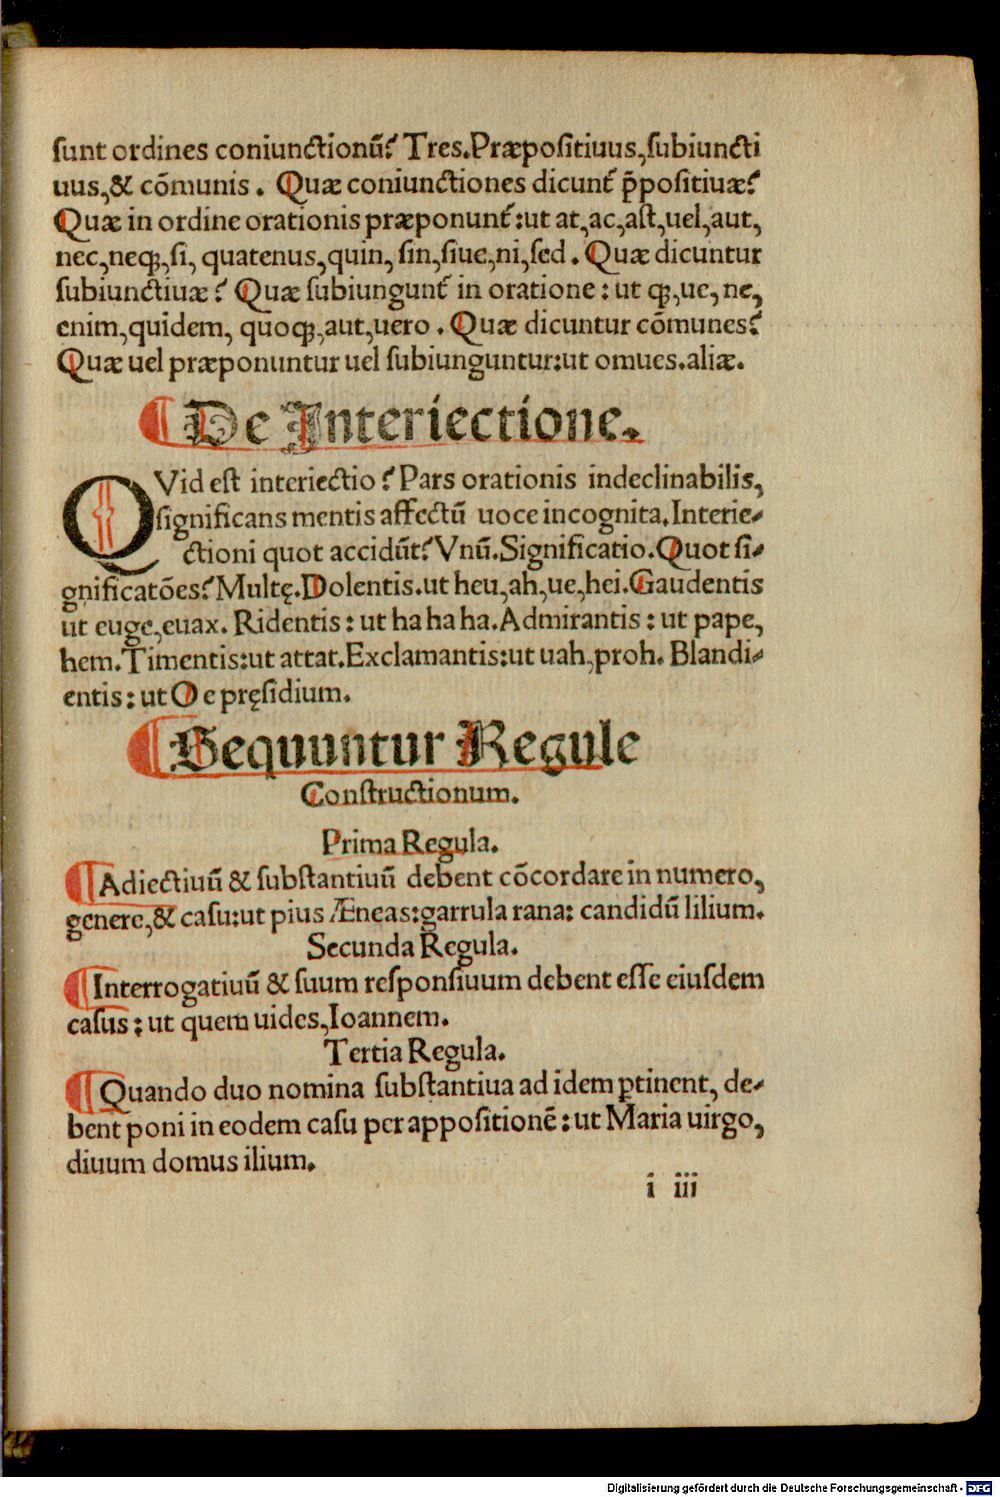 sunt ordines coniunctionū? Tres.Præpositiuus,subiuncti
uus,& cōmunis. Quæ coniunctiones dicunt᷑ p̄positiuæ?
Quæ in ordine orationis præponunt᷑:ut at,ac,ast,uel,aut,
nec,neqꝫ,si, quatenus,quin, sin,siue,ni,sed. Quæ dicuntur
subiunctiuæ? Quæ subiungunt᷑ in oratione: ut qꝫ,ue,ne,
enim,quidem, quoqꝫ,aut,uero. Quæ dicuntur cōmunes?
Quæ uel præponuntur uel subiunguntur:ut omues.aliæ.
¶De Interiectione.
QVid est interiectio? Pars orationis indeclinabilis,
significans mentis affectū uoce incognita.Interie⸗
ctioni quot accidūt? Vnū.Significatio.Quot si⸗
gnificatōes? Multę.Dolentis.ut heu,ah,ue,hei.Gaudentis
ut euge,euax. Ridentis: ut ha ha ha.Admirantis: ut pape,
hem.Timentis:ut attat.Exclamantis:ut uah,proh. Blandi⸗
entis: ut O e pręsidium.
¶Sequuntur Regule
Constructionum.
Prima Regula.
¶Adiectiuū & substantiuū debent cōcordare in numero,
genere,& casu:ut pius Æneas:garrula rana: candidū lilium.
Secunda Regula.
¶Interrogatiuū & suum responsiuum debent esse eiusdem
casus: ut quem uides,Ioannem.
Tertia Regula.
¶Quando duo nomina substantiua ad idem ꝑtinent, de⸗
bent poni in eodem casu per appositionē: ut Maria uirgo,
diuum domus ilium.
i iii
Digitalisierung gefördert durch die Deutsche Forschungsgemeinschaft - DFG